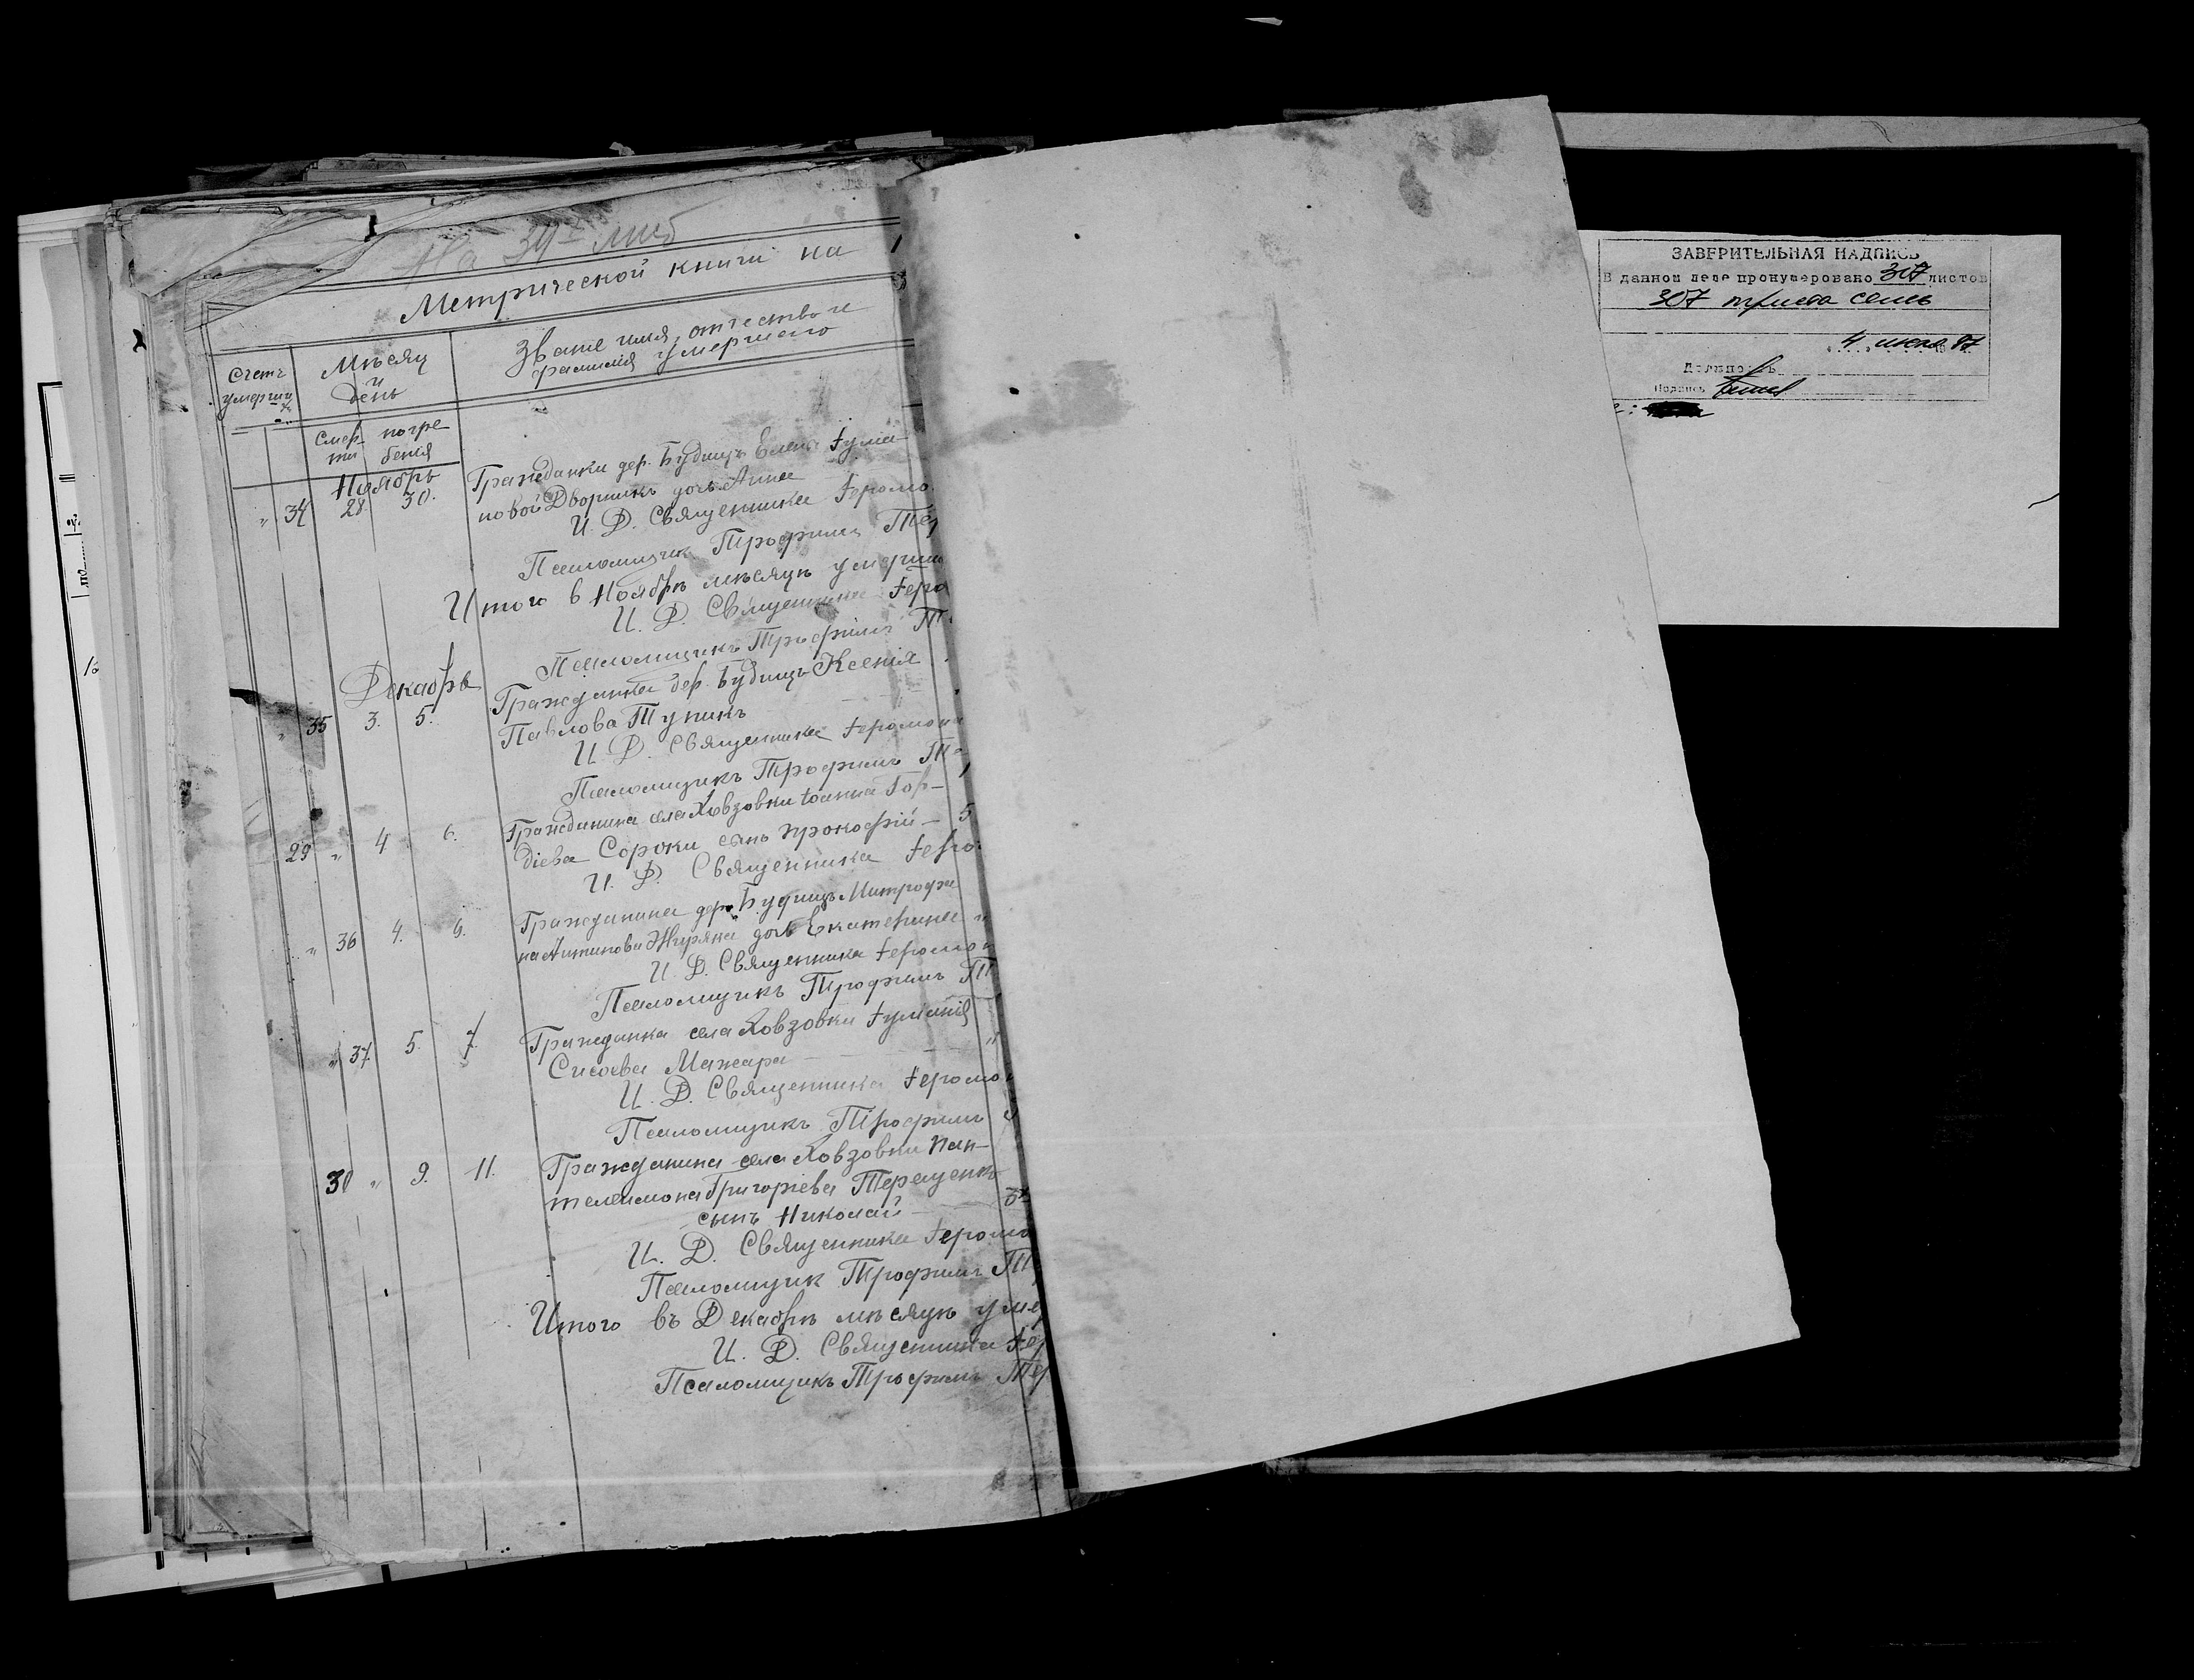 На 39й лист
Метрической книги на 1
Счетъ умершихъ
Мѣсяц и день
Званіе имя, отчество и фамилія умершаго
Смерти
погребенія
Ноябрь
" 34 28. 30. Гражданки дер. Будищъ Елены Іулиа-
новой Дворникъ дочь Анна
И. Д. Священника Іеромо
Псаломщик Трофимъ Тер
Итого в Ноябрѣ мѣсяцѣ умерши
И. Д. Священника Іеро
Псаломщикъ Трофимъ Т
Декабрь
" 35 3. 5. Гражданка дер. Будищъ Ксенія
Павлова Тупикъ
И. Д. Священника Іеромона
Псаломщикъ Трофимъ Те
29 " 4 6. Гражданина села Ховзовки Іоанна Гор-
діева Сороки сынъ Прокофій — 5
И. Д. Священника Іеро
" 36 4. 6. Гражданина дер. Будищъ Митрофа
на дочь Екатерина "
И. Д. Священника Іеромон
Псаломщикъ Трофимъ Т
" 37. 5. 7. Гражданка села Ховзовки Іулианія
Сисоева Мажара "
И. Д. Священника Іеромон
Псаломщикъ Трофимъ
30 " 9. 11. Гражданина села Ховзовки Пан-
телеимона Григоріева Терещенко
сынъ Николай
И. Д. Священника Іеромо
Псаломщик Трофимъ Т
Итого въ Декабрѣ мѣсяцѣ умер
И. Д. Священника Іер
Псаломщикъ Трофимъ Тер
ЗАВЕРИТЕЛЬНАЯ НАДПИСЬ
В данном деле пронумеровано 307 листов
307 триста семь
4 июля 87
Должность
Подпись